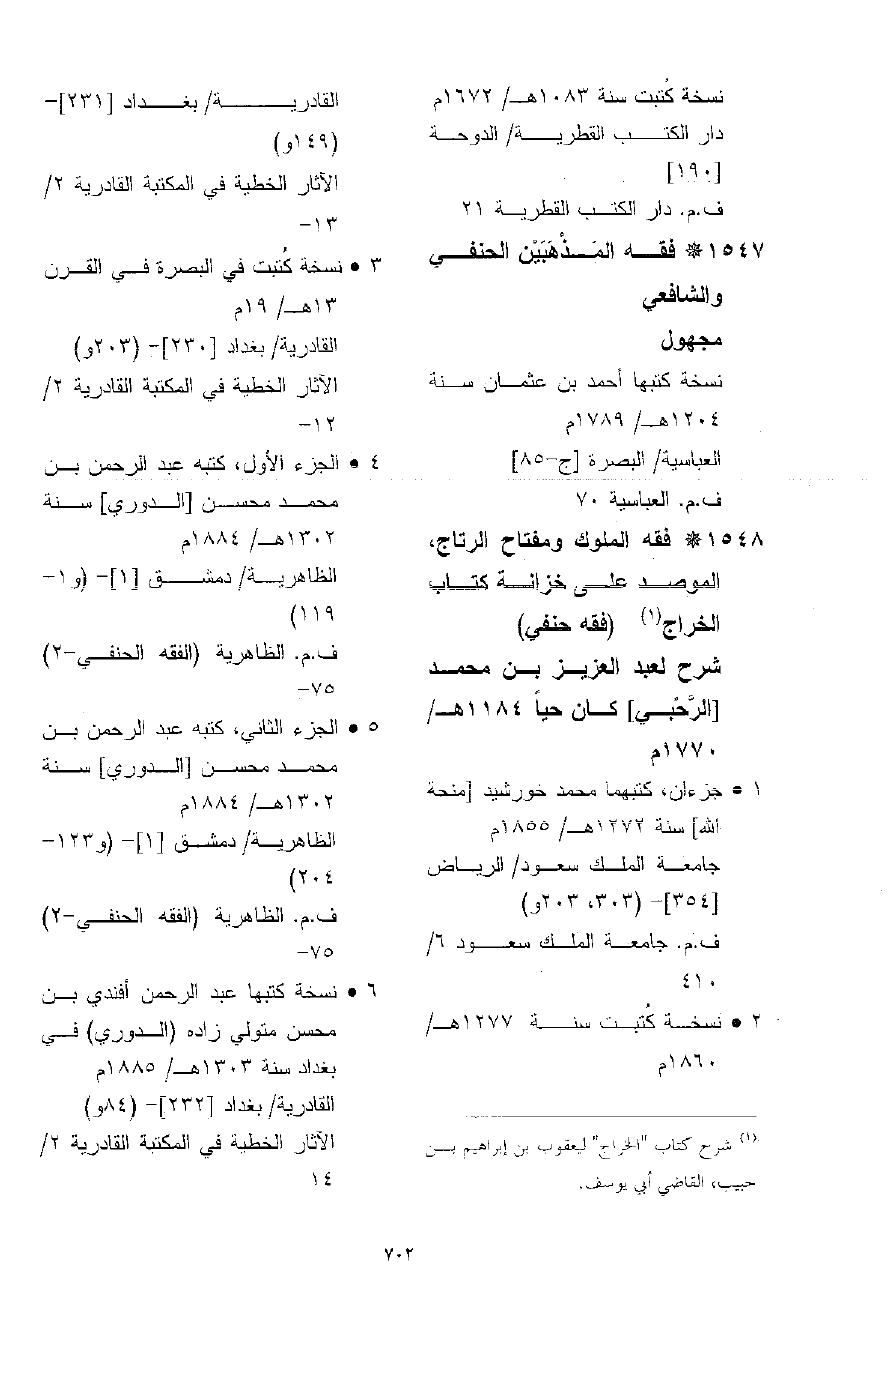 نسخة كُتبت سنة ١٠٨٣هـ/ ١٦٧٢م
دار الكتب القطرية/ الدوحة
[١٩٠]
ف.م. دار الكتب القطرية ٢١
١٥٤٧* فقه المَذْهَبَيْن الحنفي
والشافعي
مجهول
نسخة كتبها أحمد بن عثمان سنة
١٢٠٤هـ/ ١٧٨٩م
العباسية/ البصرة [ج-٨٥]
ف.م. العباسية ٧٠
١٥٤٨* فقه الملوك ومفتاح الرتاج،
الموصد على خزانة كتاب
الخراج(١) (فقه حنفي)
شرح لعبد العزيز بن محمد
[الرَّحْبي] كان حياً ١١٨٤هـ/
١٧٧٠م
١ • جزءان، كتبهما محمد خورشيد [منحة
الله] سنة ١٢٧٢هـ/ ١٨٥٥م
جامعة الملك سعود/ الرياض
[٣٥٤]- (٣٠٣، ٢٠٣و)
ف.م. جامعة الملك سعود ٦/
٤١٠
٢ • نسخة كُتبت سنة ١٢٧٧هـ/
١٨٦٠م
(١) شرح كتاب "الخراج" ليعقوب بن إبراهيم بن
حبيب، القاضي أبي يوسف.
القادرية/ بغداد [٢٣١]-
(١٤٩و)
الآثار الخطية في المكتبة القادرية ٢/
١٣-
٣ • نسخة كُتبت في البصرة في القرن
١٣هـ/ ١٩م
القادرية/ بغداد [٢٣٠]- (٢٠٣و)
الآثار الخطية في المكتبة القادرية ٢/
١٢-
٤ • الجزء الأول، كتبه عبد الرحمن بن
محمد محسن [الدوري] سنة
١٣٠٢هـ/ ١٨٨٤م
الظاهرية/ دمشق [١]- (و١-
١١٩)
ف.م. الظاهرية (الفقه الحنفي-٢)
٧٥-
٥ • الجزء الثاني، كتبه عبد الرحمن بن
محمد محسن [الدوري] سنة
١٣٠٢هـ/ ١٨٨٤م
الظاهرية/ دمشق [١]- (و١٢٣-
٢٠٤)
ف.م. الظاهرية (الفقه الحنفي-٢)
٧٥-
٦ • نسخة كتبها عبد الرحمن أفندي بن
محسن متولي زاده (الدوري) في
بغداد سنة ١٣٠٣هـ/ ١٨٨٥م
القادرية/ بغداد [٢٣٢]- (٨٤و)
الآثار الخطية في المكتبة القادرية ٢/
١٤
٧٠٢